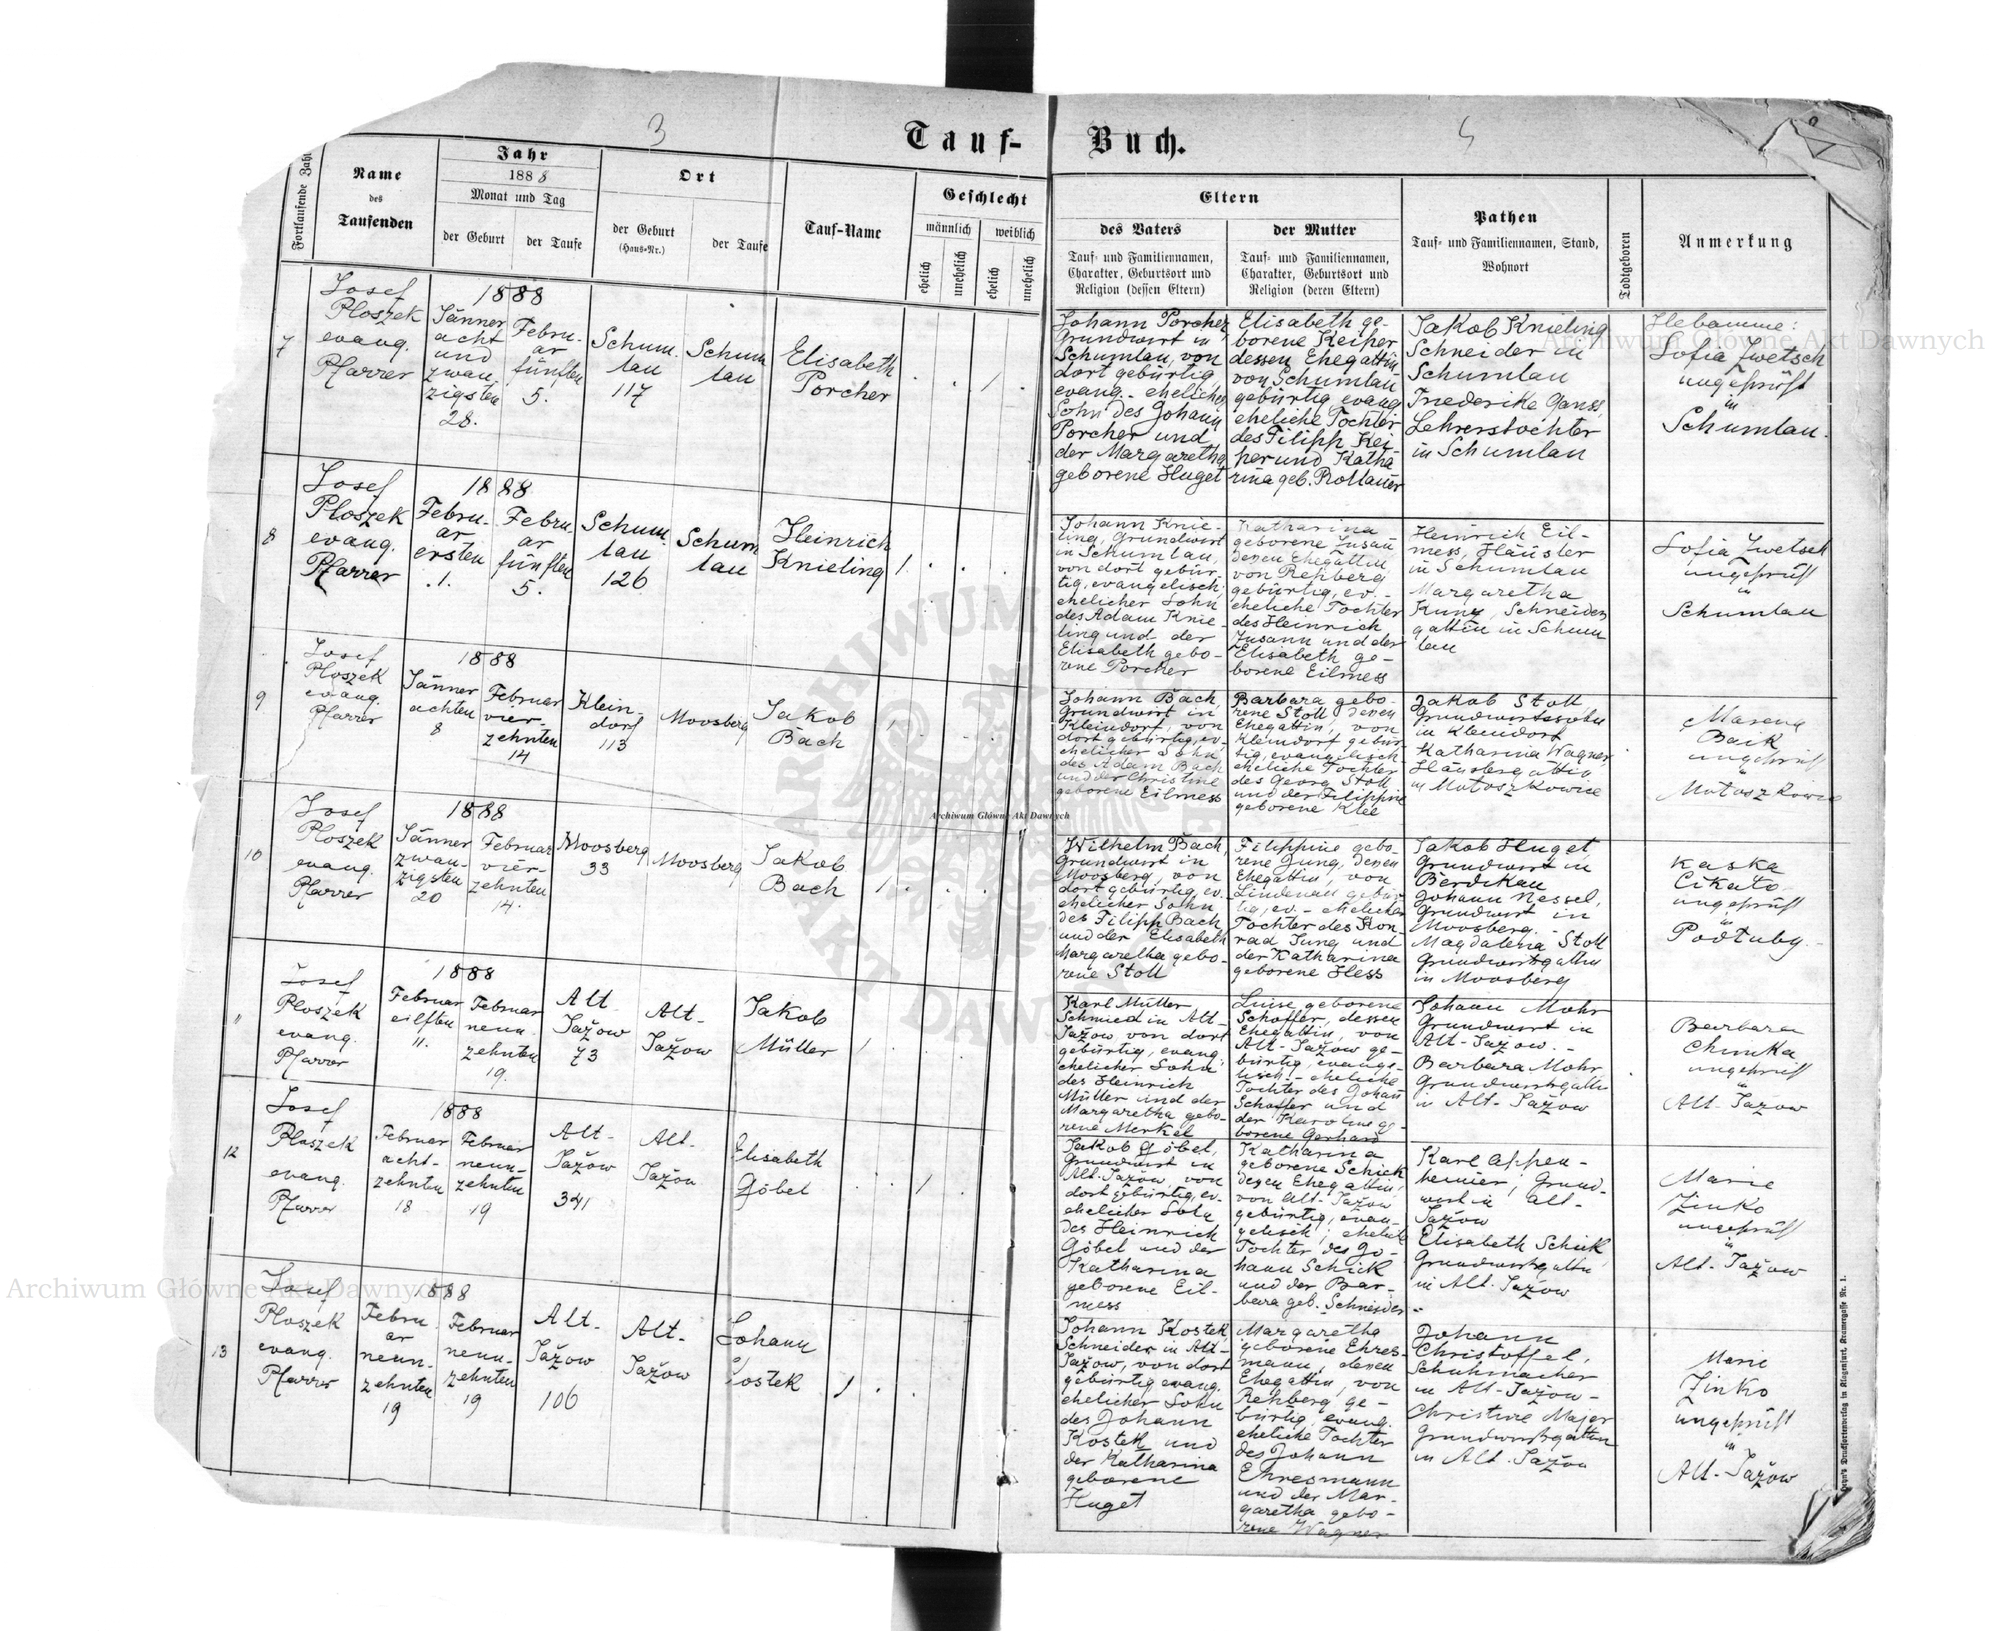 3
Tauf-
Buch.
Fortlaufende Zahl
Name
des
Taufenden
Jahr
1888
Monat und Tag
der Geburt
der Taufe
Ort
der Geburt
(Haus-Nr.)
der Taufe
Tauf-Name
Geschlecht
männlich
weiblich
ehelich
unehelich
ehelich
unehelich
Eltern
des Vaters
Tauf- und Familiennamen,
Charakter, Geburtsort und
Religion (dessen Eltern)
der Mutter
Tauf- und Familiennamen,
Charakter, Geburtsort und
Religion (deren Eltern)
Pathen
Tauf- und Familiennamen, Stand,
Wohnort
Todtgeboren
Anmerkung
7
Josef
Ploszek
evang.
Pfarrer
1888
Jänner
acht
und
zwan
zigsten
28.
Febru-
ar
fünften
5.
Schum-
lau
117
Schum
lau
Elisabeth
Porcher
1
Johann Porcher,
Grundwirt in
Schumlau, von
dort gebürtig,
evang. ehelicher
Sohn des Johann
Porcher und
der Margaretha
geborene Huget
Elisabeth ge-
borene Keiper
dessen Ehegattin
von Schumlau
gebürtig evang
eheliche Tochter
des Filipp Kei-
per und Katha
rina geb. Rollauer
Jakob Knieling
Schneider in
Schumlau
Friederike Ganss,
Lehrerstochter
in Schumlau
Hebamme:
Sofia Zwetsch
ungeprüft
in
Schumlau.
8
Josef
Ploszek
evang.
Pfarrer
1888
Febru-
ar
ersten
.1.
Febru-
ar
fünften
5.
Schum-
lau
126
Schum
lau
Heinrich
Knieling
1
Johann Knie-
ling, Grundwirt
in Schumlau,
von dort gebür-
tig, evangelisch;
ehelicher Sohn
des Adam Knie-
ling und der
Elisabeth gebo-
rene Porcher
Katharina
geborene Zusan
dessen Ehegattin,
von Rehberg
gebürtig, ev.-
eheliche Tochter
des Heinrich
Zusann und der
Elisabeth ge-
borene Eilmess
Heinrich Eil-
mess, Häusler
in Schumlau
Margaretha
Kunz, Schneiders
gattin in Schum
lau
Sofia Zwetsch
ungeprüft
in
Schumlau
9
Josef
Ploszek
evang.
Pfarrer
1888
Jänner
achten
8
Februar
vier-
zehnten
14
Klein-
dorf
113
Moosberg
Jakob
Bach
1
Johann Bach,
Grundwirt in
Kleindorf, von
dort gebürtig, ev.
ehelicher Sohn
des Adam Bach
und der Christine
geborene Eilmess
Barbara gebo-
rene Stoll, dessen
Ehegattin, von
Kleindorf gebür
tig, evangelisch
eheliche Tochter
des Georg Stoll
und der Filippine
geborene Klee
Jakob Stoll
Grundwirtssohn
in Kleindorf
Katharina Wagner,
Häuslergattin
in Mutoszkowice
Baik
ungeprüft
in
10
Josef
Ploszek
evang.
Pfarrer
1888
Jänner
zwan-
zigsten
20
Februar
vier-
zehnten
14.
Moosberg
33
Moosberg
Jakob
Bach
1
Wilhelm Bach,
Grundwirt in
Moosberg, von
dort gebürtig, ev.
ehelicher Sohn
des Filipp Bach
und der Elisabeth
Margaretha gebo-
rene Stoll
Filippine gebo-
rene Jung, dessen
Ehegattin, von
Lindenau gebür
tig, ev. - eheliche
Tochter des Kon-
rad Jung und
der Katharina
geborene Hess
Jakob Huget
Grundwirt in
Berdikau
Johann Nessel,
Grundwirt in
Moosberg.-
Magdalena Stoll
Grundwirtsgattin
in Moosberg
Kaska
Cikato-
ungeprüft
in
Podłuby.
11
Josef
Ploszek
evang.
Pfarrer
1888
Februar
eilften
11.
Februar
neun-
zehnten
19.
Alt-
Jažow
73
Alt-
Jažow
Jakob
Müller
1
Karl Müller
Schmied in Alt-
Jažow von dort
gebürtig, evang;
ehelicher Sohn
des Heinrich
Müller und der
Margaretha gebo-
rene Merkel
Luise geborene
Schoffer, dessen
Ehegattin, von
Alt-Jažow ge-
bürtig, evange-
lisch.- eheliche
Tochter des Johan
Schoffer und
der Karoline ge-
borene Gerhard
Johann Mohr
Grundwirt in
Alt-Jažow.-
Barbara Mohr
Grundwirtsgattin
in Alt-Jažow
Barbara
Chimka
ungeprüft
in
Alt-Jažow
12
Josef
Ploszek
evang.
Pfarrer
1888
Februar
acht-
zehnten
18
Februar
neun-
zehnten
19
Alt-
Jažow
341
Alt-
Jažow
Elisabeth
Göbel
1
Jakob Göbel,
Grundwirt in
Alt-Jažow, von
dort gebürtig, ev.
ehelicher Sohn
des Heinrich
Göbel und der
Katharina
geborene Eil-
mess
Katharina
geborene Schick
dessen Ehegattin,
von Alt-Jažow
gebürtig, evan-
gelisch; eheliche
Tochter des Jo-
hann Schick
und der Bar-
bara geb. Schneider
Karl Appen-
heimer, Grund-
wirt in Alt-
Jažow
Elisabeth Schick,
Grundwirtsgattin
in Alt-Jažow
Marie
Zinko
ungeprüft
in
Alt-Jažow
13
Josef
Ploszek
evang.
Pfarrer
1888
Febru-
ar
neun-
zehnten
19
Februar
neun-
zehnten
19
Alt-
Jažow
106
Alt-
Jažow
Johann
Kostek
1
Johann Kostek,
Schneider in Alt-
Jažow, von dort
gebürtig, evang.
ehelicher Sohn
des Johann
Kostek und
der Katharina
geborene
Huget
Margaretha
geborene Ehres-
mann, dessen
Ehegattin, von
Rehberg ge-
bürtig, evang.
eheliche Tochter
des Johann
Ehresmann
und der Mar-
garetha gebo-
rene Wagner
Johann
Christoffel,
Schuhmacher
in Alt-Jažow-
Christine Majer
Grundwirtsgattin
in Alt-Jažow
Marie
Zinko
ungeprüft
in
Alt-Jažow
Archiwum Główne Akt Dawnych
Archiwum Główne Akt Dawnych
Archiwum Główne Akt Dawnych
ARCHIWUM GŁÓWNE AKT DAWNYCH
Druckfortenverlag in Klagenfurt, Kramergasse Nr. 1.